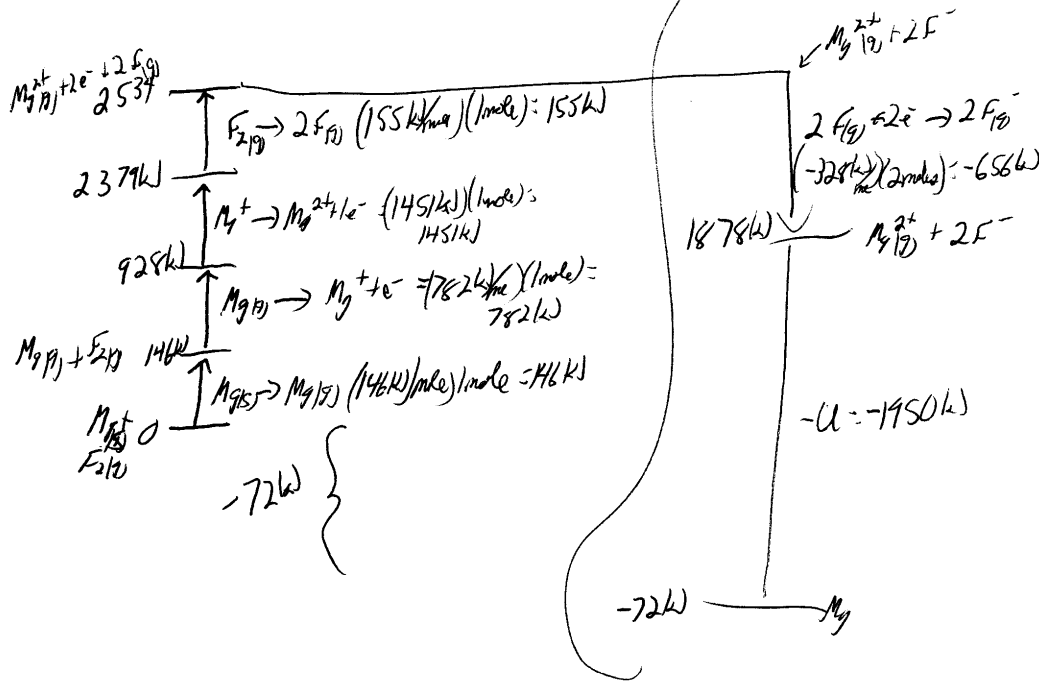 Mg²⁺(g) + 2e⁻ + 2F(g)
2534
F₂(g) → 2F(g) (155kJ/mole)(1mole) = 155kJ
2379kJ
Mg⁺ → Mg²⁺ + 1e⁻ = (1451kJ)(1mole) =
1451kJ
928kJ
Mg(g) → Mg⁺ + e⁻ = (782kJ/mole)(1mole) =
782kJ
Mg(g) + F₂(g) 146kJ
Mg(s) → Mg(g) (146kJ/mole)1mole = 146kJ
Mg(s) + 0
F₂(g)
-72kJ
Mg²⁺(g) + 2F⁻
2F(g) + 2e⁻ → 2F(g)⁻
(-328kJ/mole)(2moles) = -656kJ
1878kJ Mg²⁺(g) + 2F⁻
-U = -1950kJ
-72kJ Mg